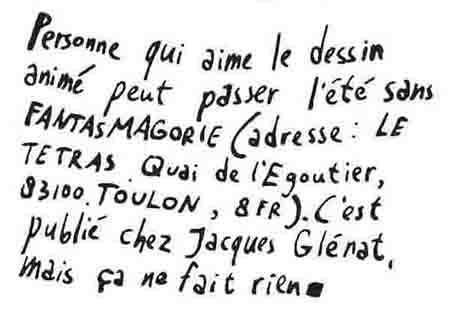 Personne qui aime le dessin
animé peut passer l'été sans
FANTASMAGORIE (adresse : LE
TETRAS. Quai de l'Egoutier,
83100. TOULON, 8 FR). C'est
publié chez Jacques Glénat,
mais ça ne fait rien.